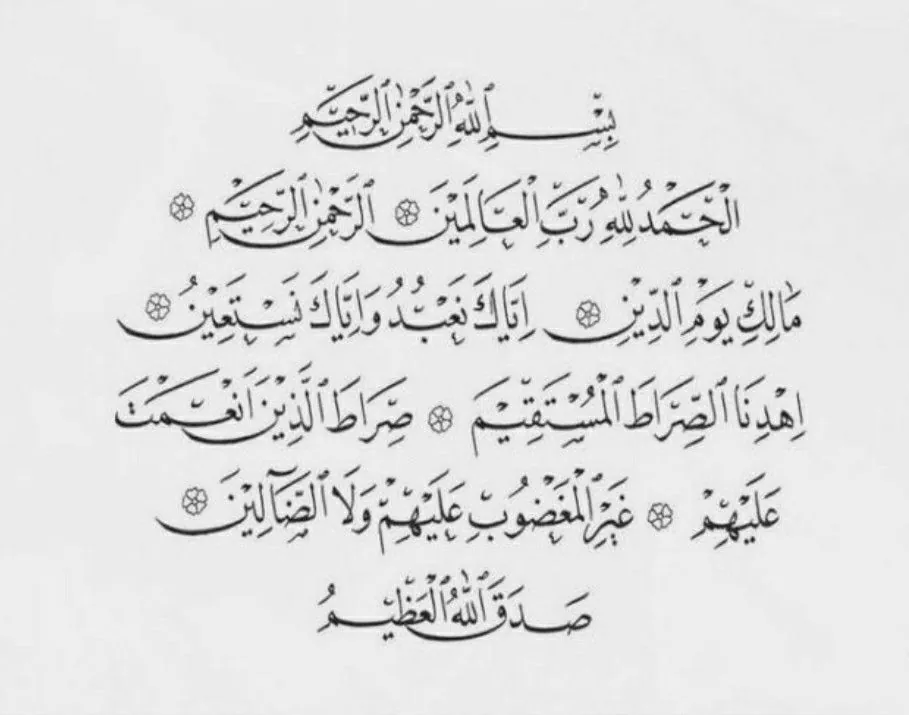 بِسْمِ ٱللّٰهِ ٱلرَّحْمٰنِ ٱلرَّحِيْمِ
اَلْحَمْدُ لِلّٰهِ رَبِّ الْعَالَمِيْنَ ۞ اَلرَّحْمٰنِ ٱلرَّحِيْمِ ۞
مَالِكِ يَوْمِ ٱلدِّيْنِ ۞ اِيَّاكَ نَعْبُدُ وَاِيَّاكَ نَسْتَعِيْنُ ۞
اِهْدِنَا ٱلصِّرَاطَ ٱلْمُسْتَقِيْمَ ۞ صِرَاطَ ٱلَّذِيْنَ اَنْعَمْتَ
عَلَيْهِمْ ۞ غَيْرِ ٱلْمَغْضُوْبِ عَلَيْهِمْ وَلَا ٱلضَّآلِّيْنَ ۞
صَدَقَ ٱللّٰهُ ٱلْعَظِيْمُ